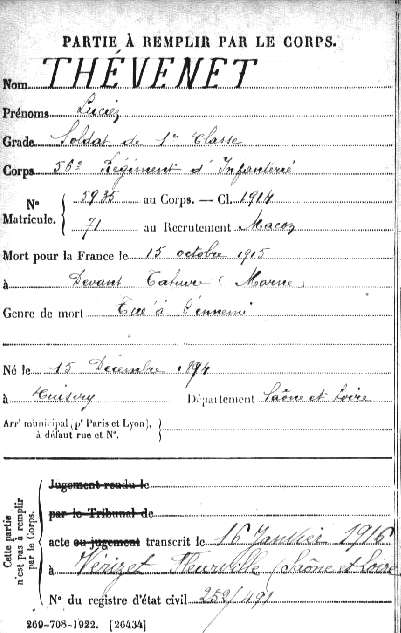 PARTIE À REMPLIR PAR LE CORPS.
Nom THÉVENET
Prénoms Lucien
Grade Soldat de 1re Classe
Corps 56e Régiment d'Infanterie
Nº Matricule. { 5935 au Corps. — Cl. 1914
71 au Recrutement Macon
Mort pour la France le 15 octobre 1915
à Devant Tahure (Marne)
Genre de mort Tué à l'ennemi
Né le 15 Décembre 1894
à Cuisery Département Saône et Loire
Arrt municipal (pr Paris et Lyon), à défaut rue et Nº. }
Cette partie n'est pas à remplir par le Corps.
Jugement rendu le
par le Tribunal de
acte ou jugement transcrit le 16 Janvier 1916
à Vérizet Fleurville (Saône et Loire
Nº du registre d'état civil 259/191
269-708-1922. [26434]